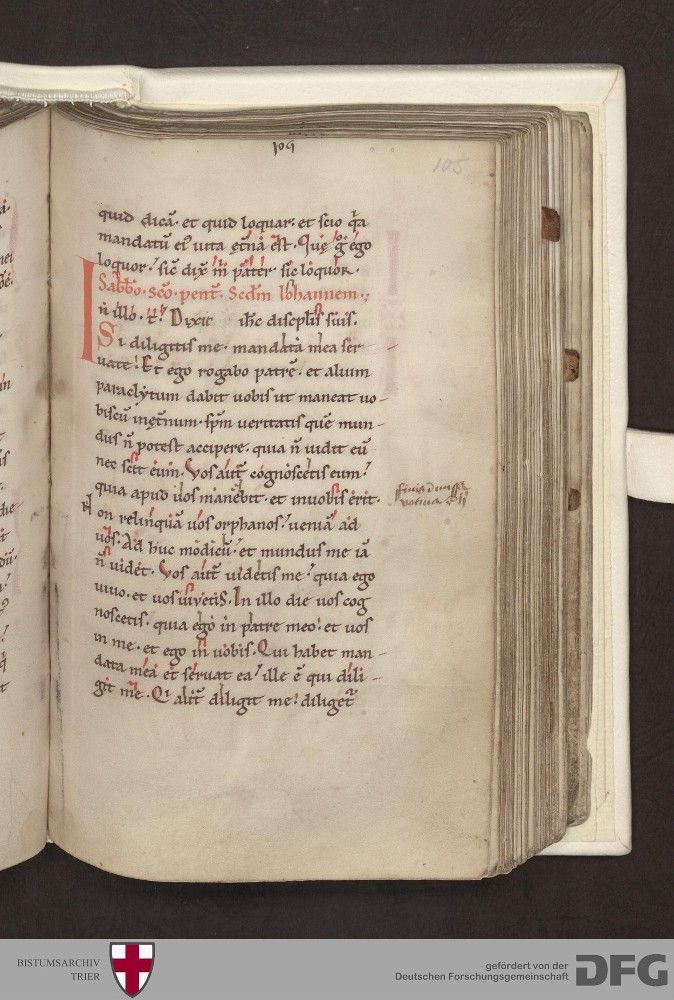 109
105
quid dicā. et quid loquar. et scio q̄a
mandatū ei' uita et̄na est. Quę g° ego
loquor. sic̄ dix̄ m̄ pater. sic loquor.
Sabb̄o. sc̄o. pent̄. Scdm Iohannem.
In illo. t̄. Dixit ih̄c discipl̄is suis.
Si diligitis me. mandata mea ser
uate. Et ego rogabo patrē. et alium
paraclytum dabit uobis ut maneat uo-
biscū inęt̄num. sp̄m ueritatis quē mun-
dus n̄ potest accipere. quia n̄ uidit eū
nec scit eum. Vos aut̄ cognoscetis eum.
quia apud uos manebit. et in uobis erit.
Non relinquā uos orphanos. ueniā ad
uos. Ad huc modicū. et mundus me iā
n̄ uidet. Vos aut̄ uidetis me. quia ego
uiuo. et uos uiuetis. In illo die uos cog
noscetis. quia ego in patre meo. et uos
in me. et ego in uobis. Qui habet man-
data mea et seruat ea. ille ē qui dili-
git me. Qi aut̄ diligit me. diliget̄
BISTUMSARCHIV
TRIER
gefördert von der
Deutschen Forschungsgemeinschaft
DFG